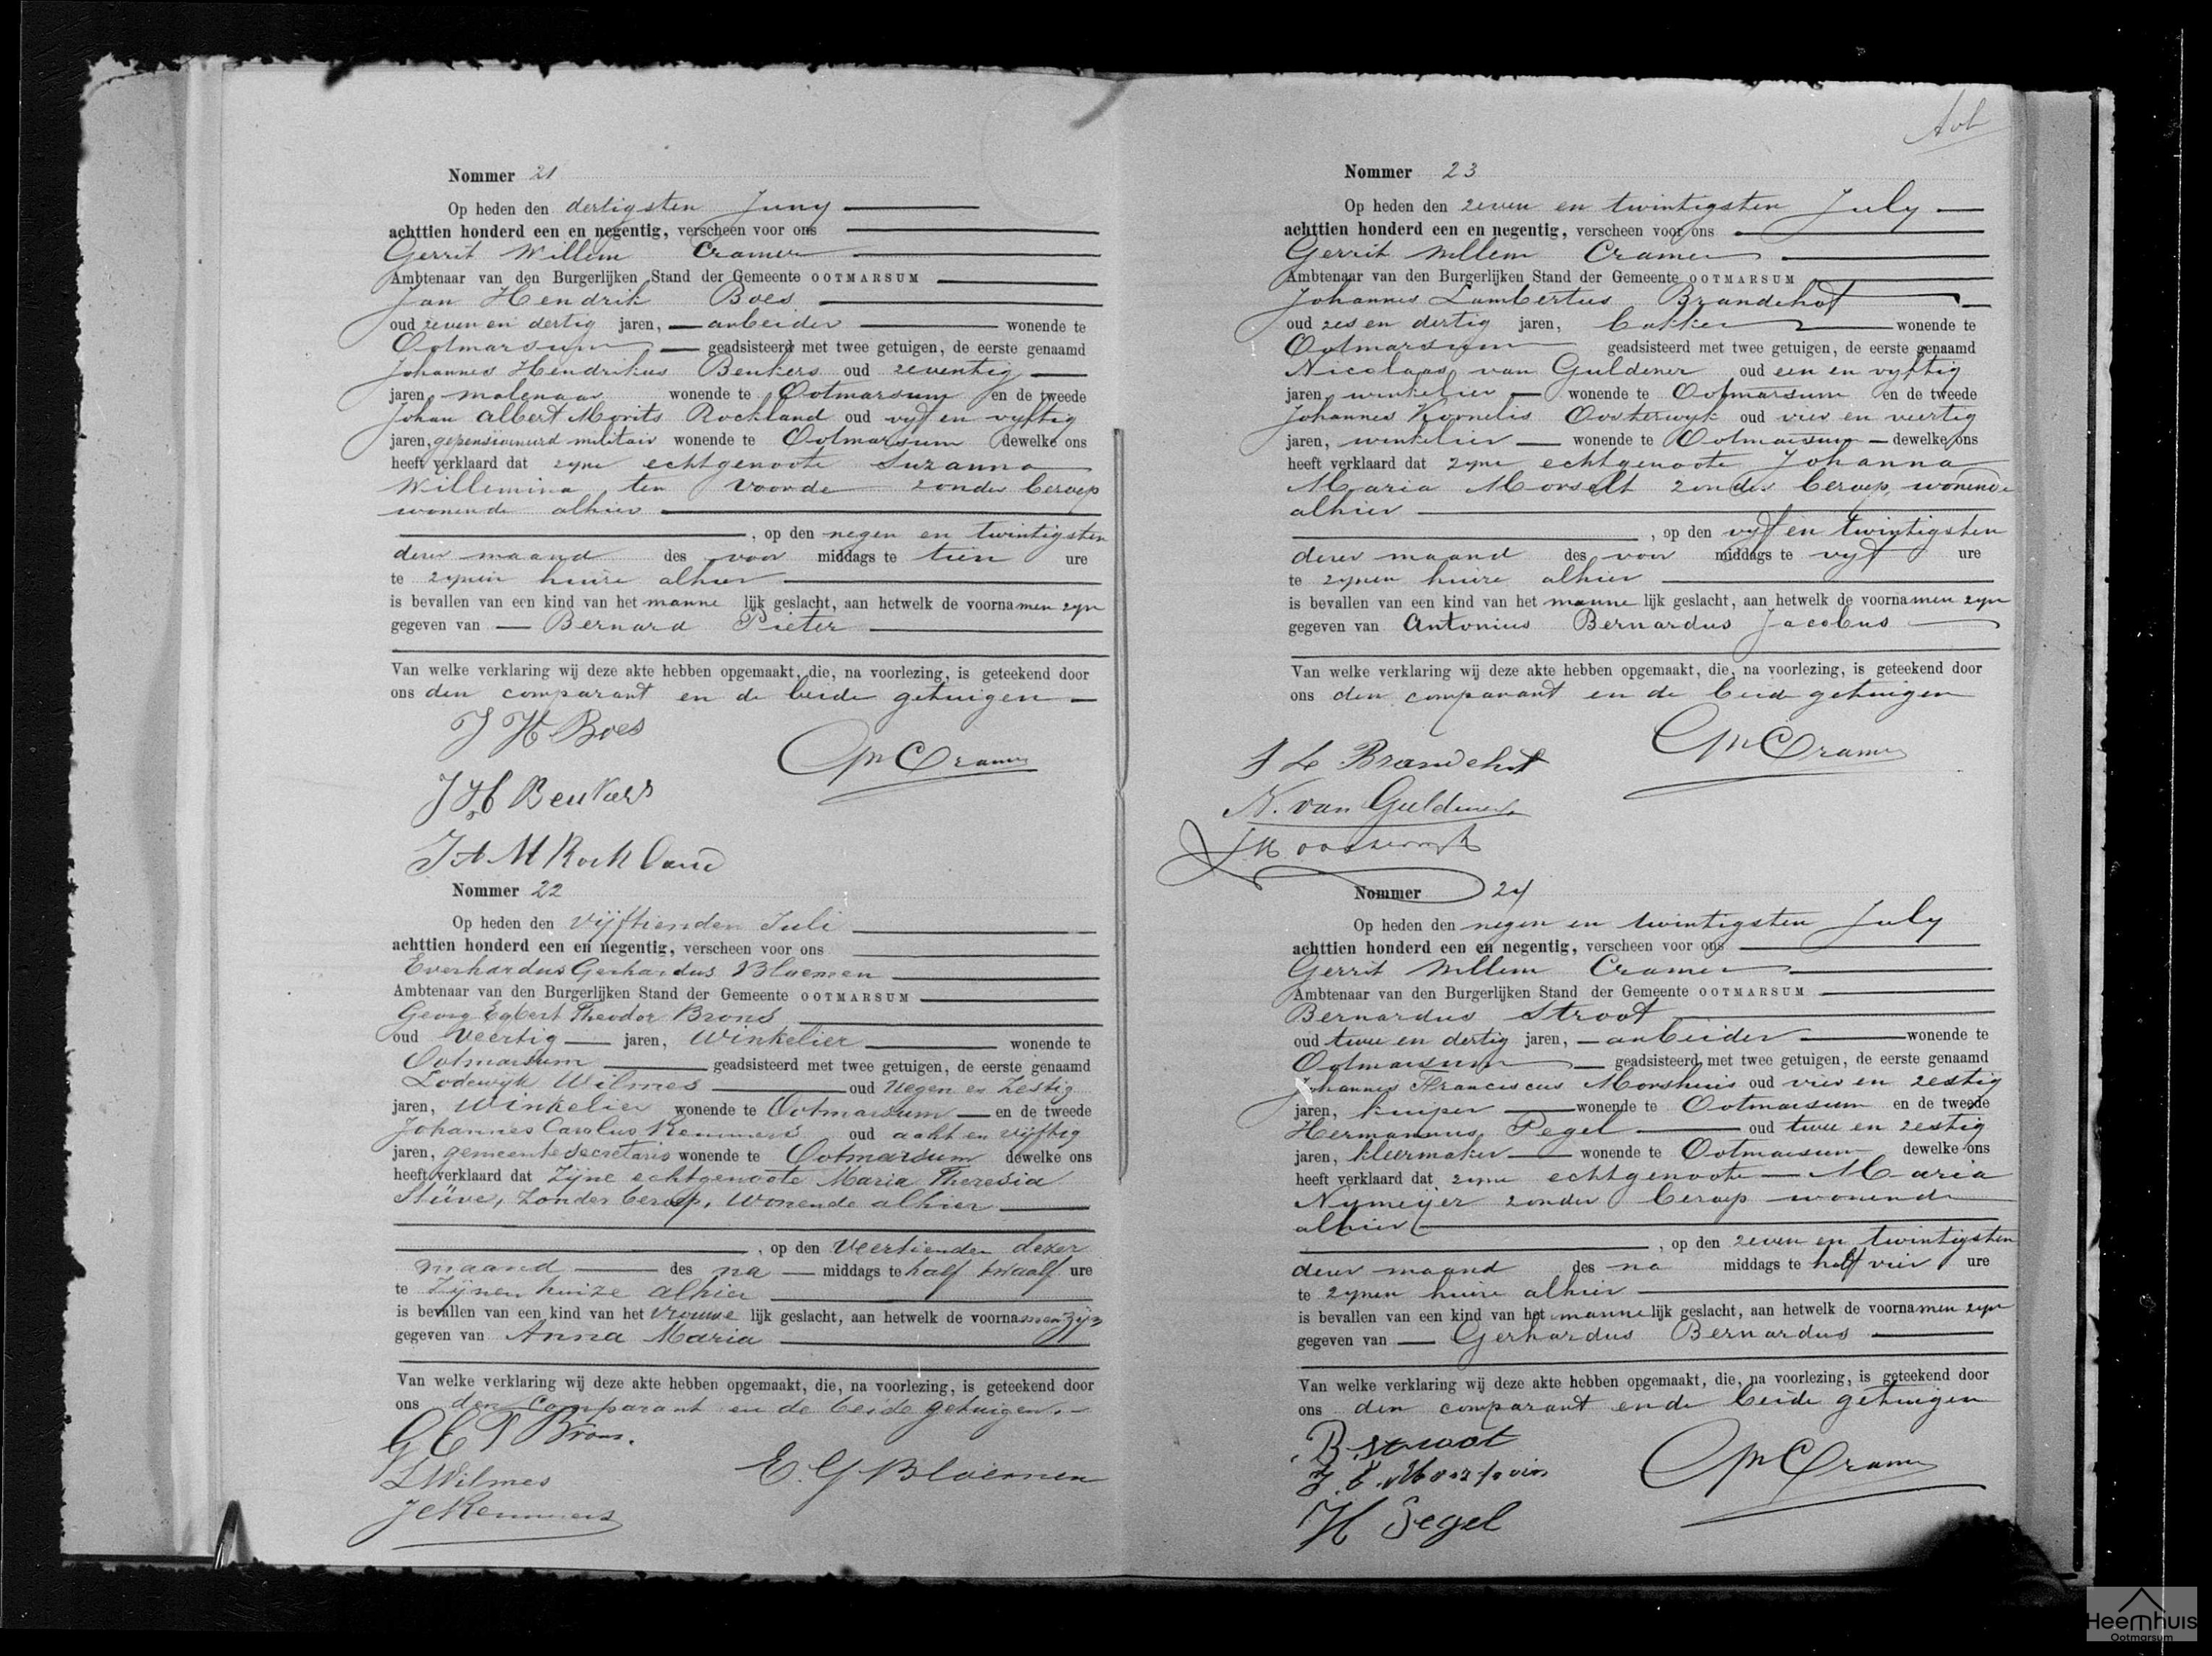 Nommer 21
Op heden den dertigsten Juny
achttien honderd een en negentig, verscheen voor ons
Gerrit Willem Cramer
Ambtenaar van den Burgerlijken Stand der Gemeente OOTMARSUM
Jan Hendrik Boes
oud zeven en dertig jaren, arbeider wonende te
Ootmarsum geadsisteerd met twee getuigen, de eerste genaamd
Johannes Hendrikus Beukers oud zeventig
jaren, molenaar wonende te Ootmarsum en de tweede
Johan Albert Morits Rockland oud vyf en vyftig
jaren, gepensioneerd militair wonende te Ootmarsum dewelke ons
heeft verklaard dat zyne echtgenoote Suzanna
Willemina ten Voorde zonder beroep
wonende alhier
, op den negen en twintigsten
dezer maand des voor middags te tien ure
te zynen huize alhier
is bevallen van een kind van het manne lijk geslacht, aan hetwelk de voornamen zyn
gegeven van Bernard Pieter
Van welke verklaring wij deze akte hebben opgemaakt, die, na voorlezing, is geteekend door
ons den comparant en de beide getuigen
J H Boes
GW Cramer
J H Beukers
J A M Rockland
Nommer 22
Op heden den Vijftienden Juli
achttien honderd een en negentig, verscheen voor ons
Everhardus Gerhardus Bloemen
Ambtenaar van den Burgerlijken Stand der Gemeente OOTMARSUM
Georg Egbert Theodor Brons
oud Veertig jaren, Winkelier wonende te
Ootmarsum geadsisteerd met twee getuigen, de eerste genaamd
Lodewijk Wilmes oud Negen en Zestig
jaren, Winkelier wonende te Ootmarsum en de tweede
Johannes Carolus Remmers oud acht en vijftig
jaren, gemeente secretaris wonende te Ootmarsum dewelke ons
heeft verklaard dat Zijne echtgenoote Maria Theresia
Stüve, Zonder beroep, Wonende alhier
, op den Veertienden dezer
maand des na middags te half twaalf ure
te Zijnen huize alhier
is bevallen van een kind van het vrouwe lijk geslacht, aan hetwelk de voornamen zijn
gegeven van Anna Maria
Van welke verklaring wij deze akte hebben opgemaakt, die, na voorlezing, is geteekend door
ons den Comparant en de beide getuigen.
G E T Brons.
E. G Bloemen
L Wilmes
J C Remmers
Nommer 23
Op heden den zeven en twintigsten July
achttien honderd een en negentig, verscheen voor ons
Gerrit Willem Cramer
Ambtenaar van den Burgerlijken Stand der Gemeente OOTMARSUM
Johannes Lambertus Brandehof
oud zes en dertig jaren, bakker wonende te
Ootmarsum geadsisteerd met twee getuigen, de eerste genaamd
Nicolaas van Guldener oud een en vyftig
jaren winkelier wonende te Ootmarsum en de tweede
Johannes Kornelis Oosterwyk oud vier en veertig
jaren, winkelier wonende te Ootmarsum dewelke ons
heeft verklaard dat zyne echtgenoote Johanna
Maria Morselt zonder beroep, wonende
alhier
, op den vyf en twintigsten
dezer maand des voor middags te vyf ure
te zynen huize alhier
is bevallen van een kind van het manne lijk geslacht, aan hetwelk de voornamen zyn
gegeven van Antonius Bernardus Jacobus
Van welke verklaring wij deze akte hebben opgemaakt, die, na voorlezing, is geteekend door
ons den comparant en de beide getuigen
GW Cramer
J L Brandehof
N. van Guldener
J K Oosterwyk
Nommer 24
Op heden den negen en twintigsten July
achttien honderd een en negentig, verscheen voor ons
Gerrit Willem Cramer
Ambtenaar van den Burgerlijken Stand der Gemeente OOTMARSUM
Bernardus Stroot
oud twee en dertig jaren, arbeider wonende te
Ootmarsum geadsisteerd met twee getuigen, de eerste genaamd
Johannes Franciscus Morshuis oud vier en zestig
jaren, kuiper wonende te Ootmarsum en de tweede
Hermannus Pegel oud twee en zestig
jaren, kleermaker wonende te Ootmarsum dewelke ons
heeft verklaard dat zyne echtgenoote Maria
Nymeijer zonder beroep wonende
alhier
, op den zeven en twintigsten
dezer maand des na middags te half vier ure
te zynen huize alhier
is bevallen van een kind van het manne lijk geslacht, aan hetwelk de voornamen zyn
gegeven van Gerhardus Bernardus
Van welke verklaring wij deze akte hebben opgemaakt, die, na voorlezing, is geteekend door
ons den comparant en de beide getuigen
B Stroot
GW Cramer
H Pegel
Heemhuis
Ootmarsum